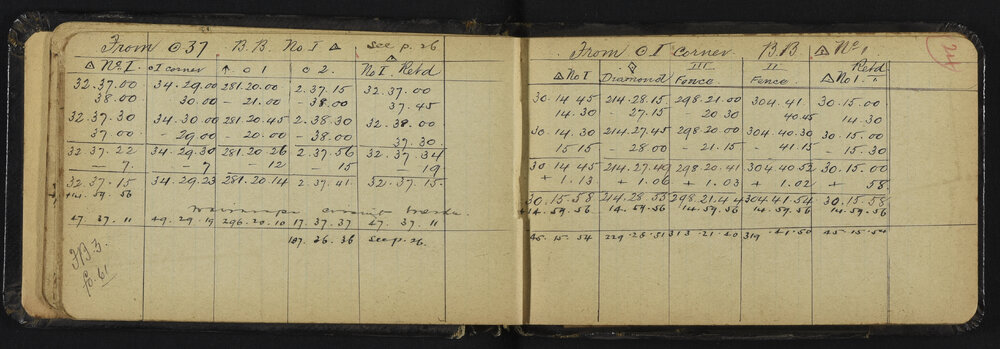 From ⊙ 37 B.B. No. I △ See p. 26
△ No. I. ⊙ I corner ↑ ⊙ 1 ⊙ 2. No I. Retd
32.37.00 34.29.00 281.20.00 2.37.15 32.37.00
38.00 30.00 - 21.00 - 38.00 37.45
32.37.30 34.30.00 281.20.45 2.38.30 32.38.00
37.00 - 29.00 - 20.00 - 38.00 37.30
32.37.22 34.29.30 281.20.26 2.37.56 32.37.34
- 7 - 7 - 12 - 15 - 19
32.37.15 34.29.23 281.20.14 2.37.41 32.37.15
+14.59.56
47.37.11 49.29.19 296.20.10 17.37.37 47.37.11
197.36.36 see p. 26
FB 3.
fo. 61
From ⊙ I corner B.B. △ No. 1
24
△ No I Diamond III Fence II Fence Retd △ No I
30.14.45 214.28.15 298.21.00 304.41 30.15.00
14.30 - 27.15 - 20.30 40.45 14.30
30.14.30 214.27.45 298.20.00 304.40.30 30.15.00
15 15 - 28.00 - 21.15 - 41 15 - 15.30
30.14 45 214.27.49 298.20.41 304.40.52 30.15.00
+ 1.13 + 1.06 + 1.03 + 1.02 + 58
30.15.58 214.28.55 298.21.44 304.41.54 30.15.58
+14.59.56 14.59.56 14.59.56 14.59.56 +14.59.56
45.15.54 229.28.51 313.21.40 319.41.50 45.15.54